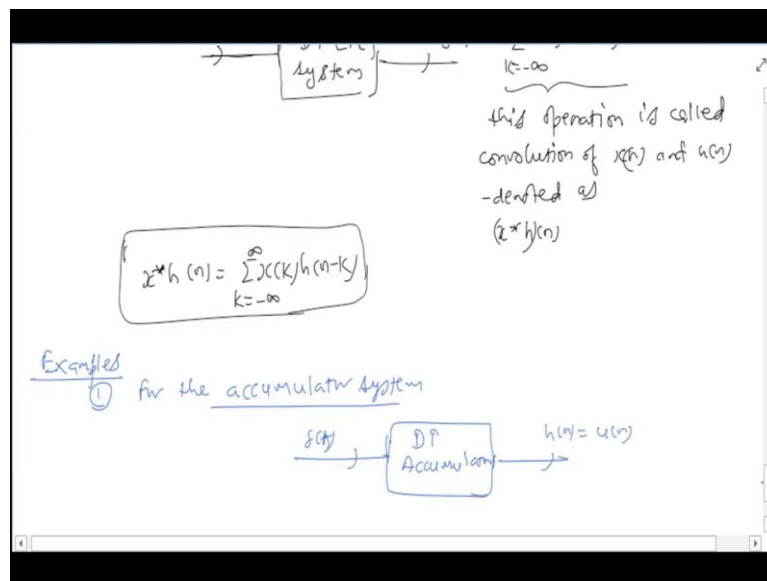 system
k=-∞
this operation is called
convolution of x(n) and h(n)
-denoted as
(x*h)(n)
x*h (n) = ∞∑k=-∞ x(k)h(n-k)
Examples
① for the accumulator system
δ(n)
DT
Accumulator
h(n) = u(n)